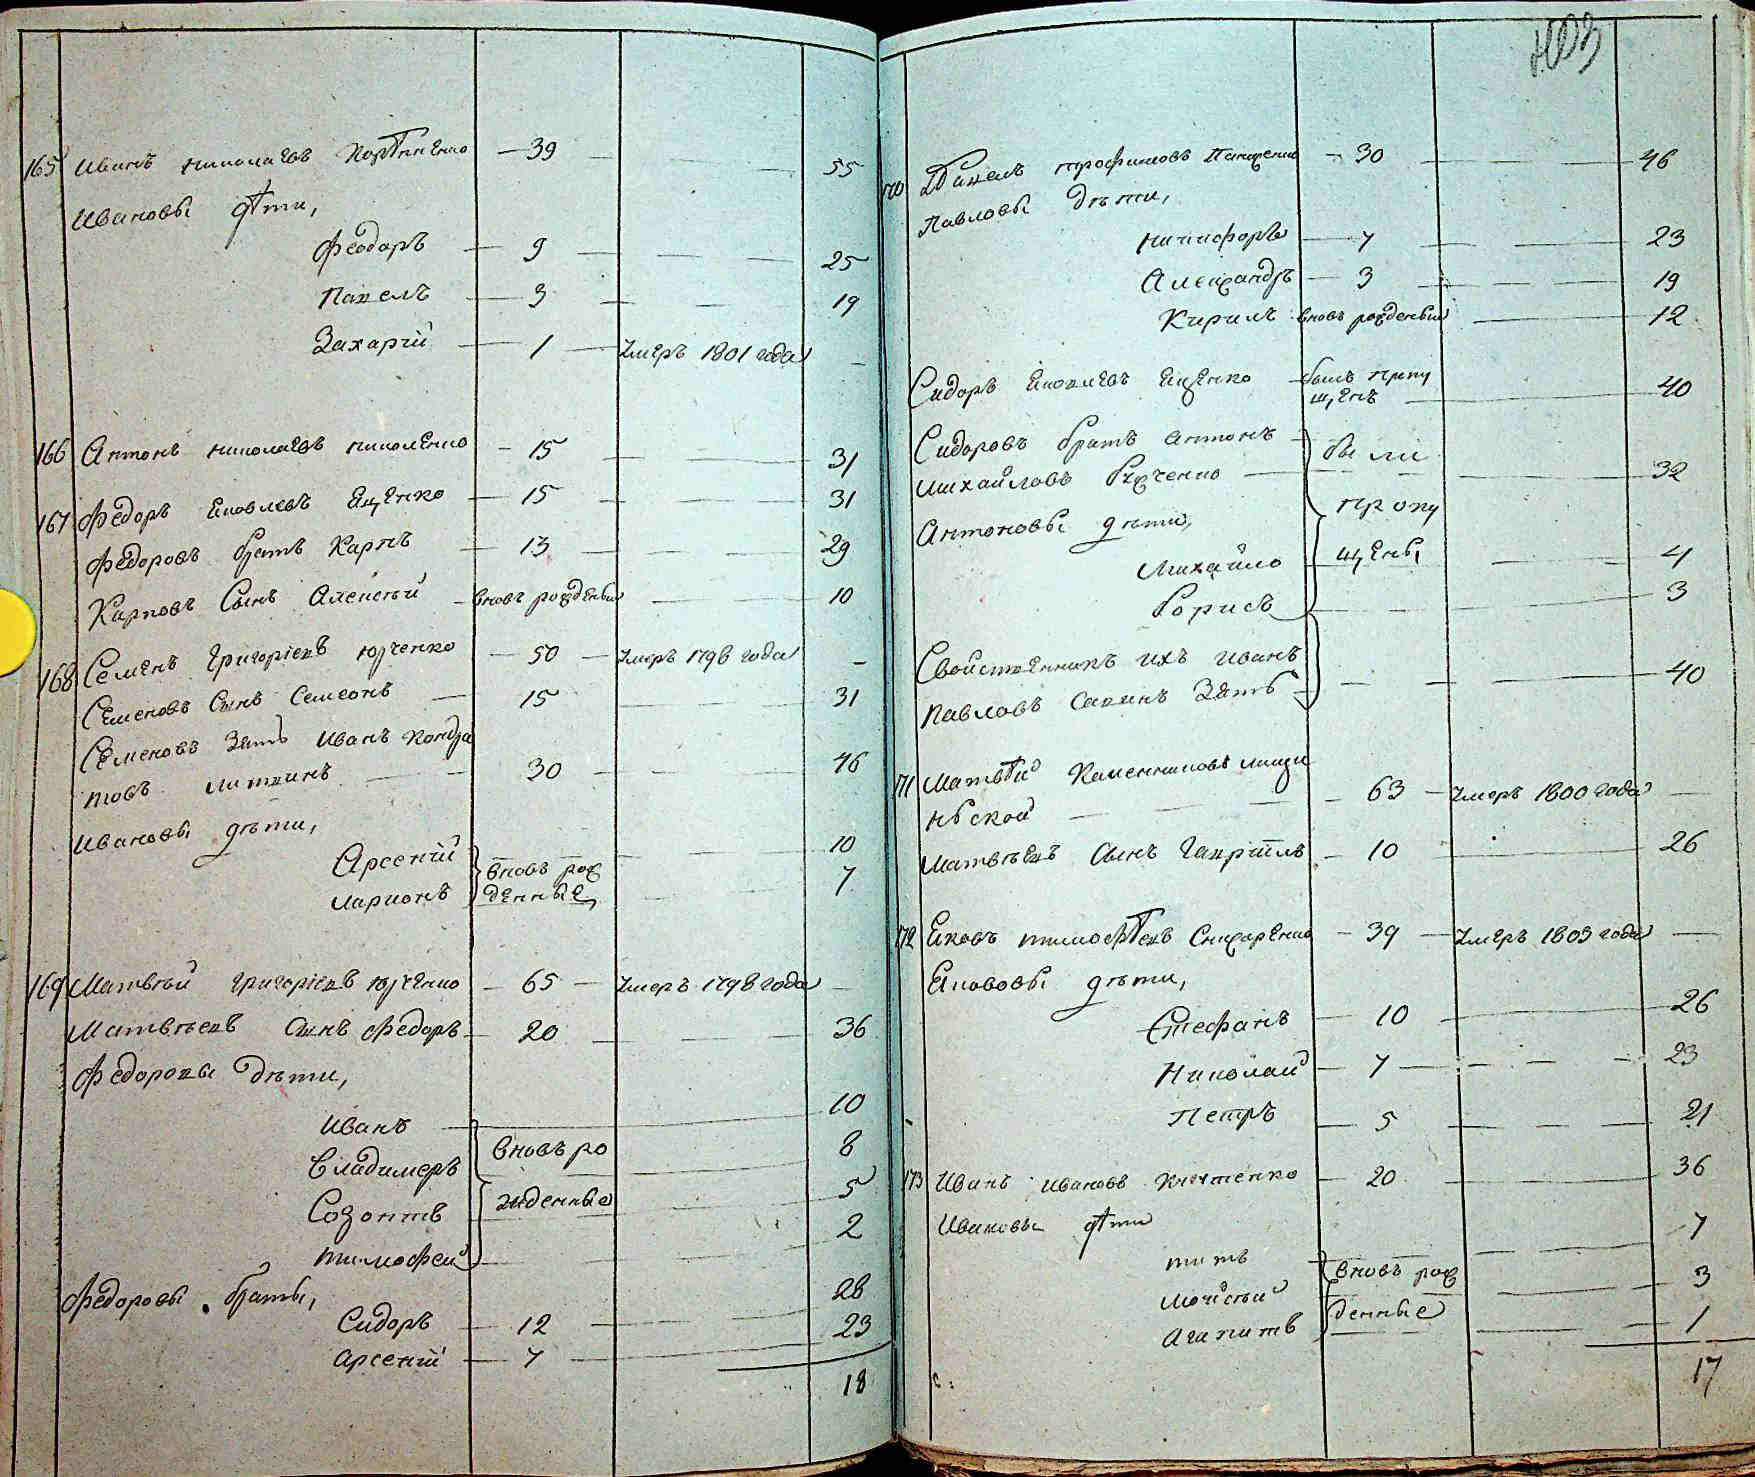 165 Иванъ Николаевъ Корѣненко — 39 — 55
Ивановы дѣти,
Феодоръ — 9 — 25
Павелъ — 3 — 19
Захарій — 1 — умеръ 1801 года —
166 Антонъ Николаевъ Николенко — 15 — 31
167 Федоръ Яковлевъ Яценко — 15 — 31
Федоровъ братъ Карпъ — 13 — 29
Карповъ Сынъ Алексѣй — вновь рожденый — 10
168 Семенъ Григоріевъ Юрченко — 50 — умеръ 1796 года —
Семеновъ Сынъ Семеонъ — 15 — 31
Семеновъ Зять Иванъ Кондра
товъ Литвинъ — 30 — 46
Ивановы дѣти,
Арсеній — вновь рож — 10
Ларионъ — денные, — 7
169 Матвѣй Григоріевъ Юрченко — 65 — умеръ 1798 года —
Матвѣевъ Сынъ Федоръ — 20 — 36
Федоровы дѣти,
Иванъ — 10
Владимеръ — вновь ро — 8
Созонтъ — жденные — 5
Тимофей — 2
Федоровы браты,
Сидоръ — 12 — 28
Арсеній — 7 — 23
18
403
170 Павелъ Трофимовъ Панченко — 30 — 46
Павловы дѣти,
Никифоръ — 7 — 23
Александръ — 3 — 19
Кирилъ вновь рожденый — 12
Сидоръ Яковлевъ Яценко — былъ пропу
щенъ — 40
Сидоровъ братъ Антонъ — бы ли
Михайловъ — 32
Антоновы дѣти, пропу
Михайло — щены — 4
Борисъ — 3
Свойственникъ ихъ Иванъ
Павловъ Савинъ Зять — 40
171 Матвѣй
нской — 63 — умеръ 1800 года —
Матвѣевъ Сынъ Гаврiилъ — 10 — 26
172 Яковъ Тимофѣевъ — 39 — умеръ 1803 года —
Якововы дѣти,
Стефанъ — 10 — 26
Николай — 7 — 23
Петръ — 5 — 21
173 Иванъ Ивановъ — 20 — 36
Ивановы дѣти
Титъ — 7
Моисѣй — вновь рож — 3
Агапитъ — денные — 1
17